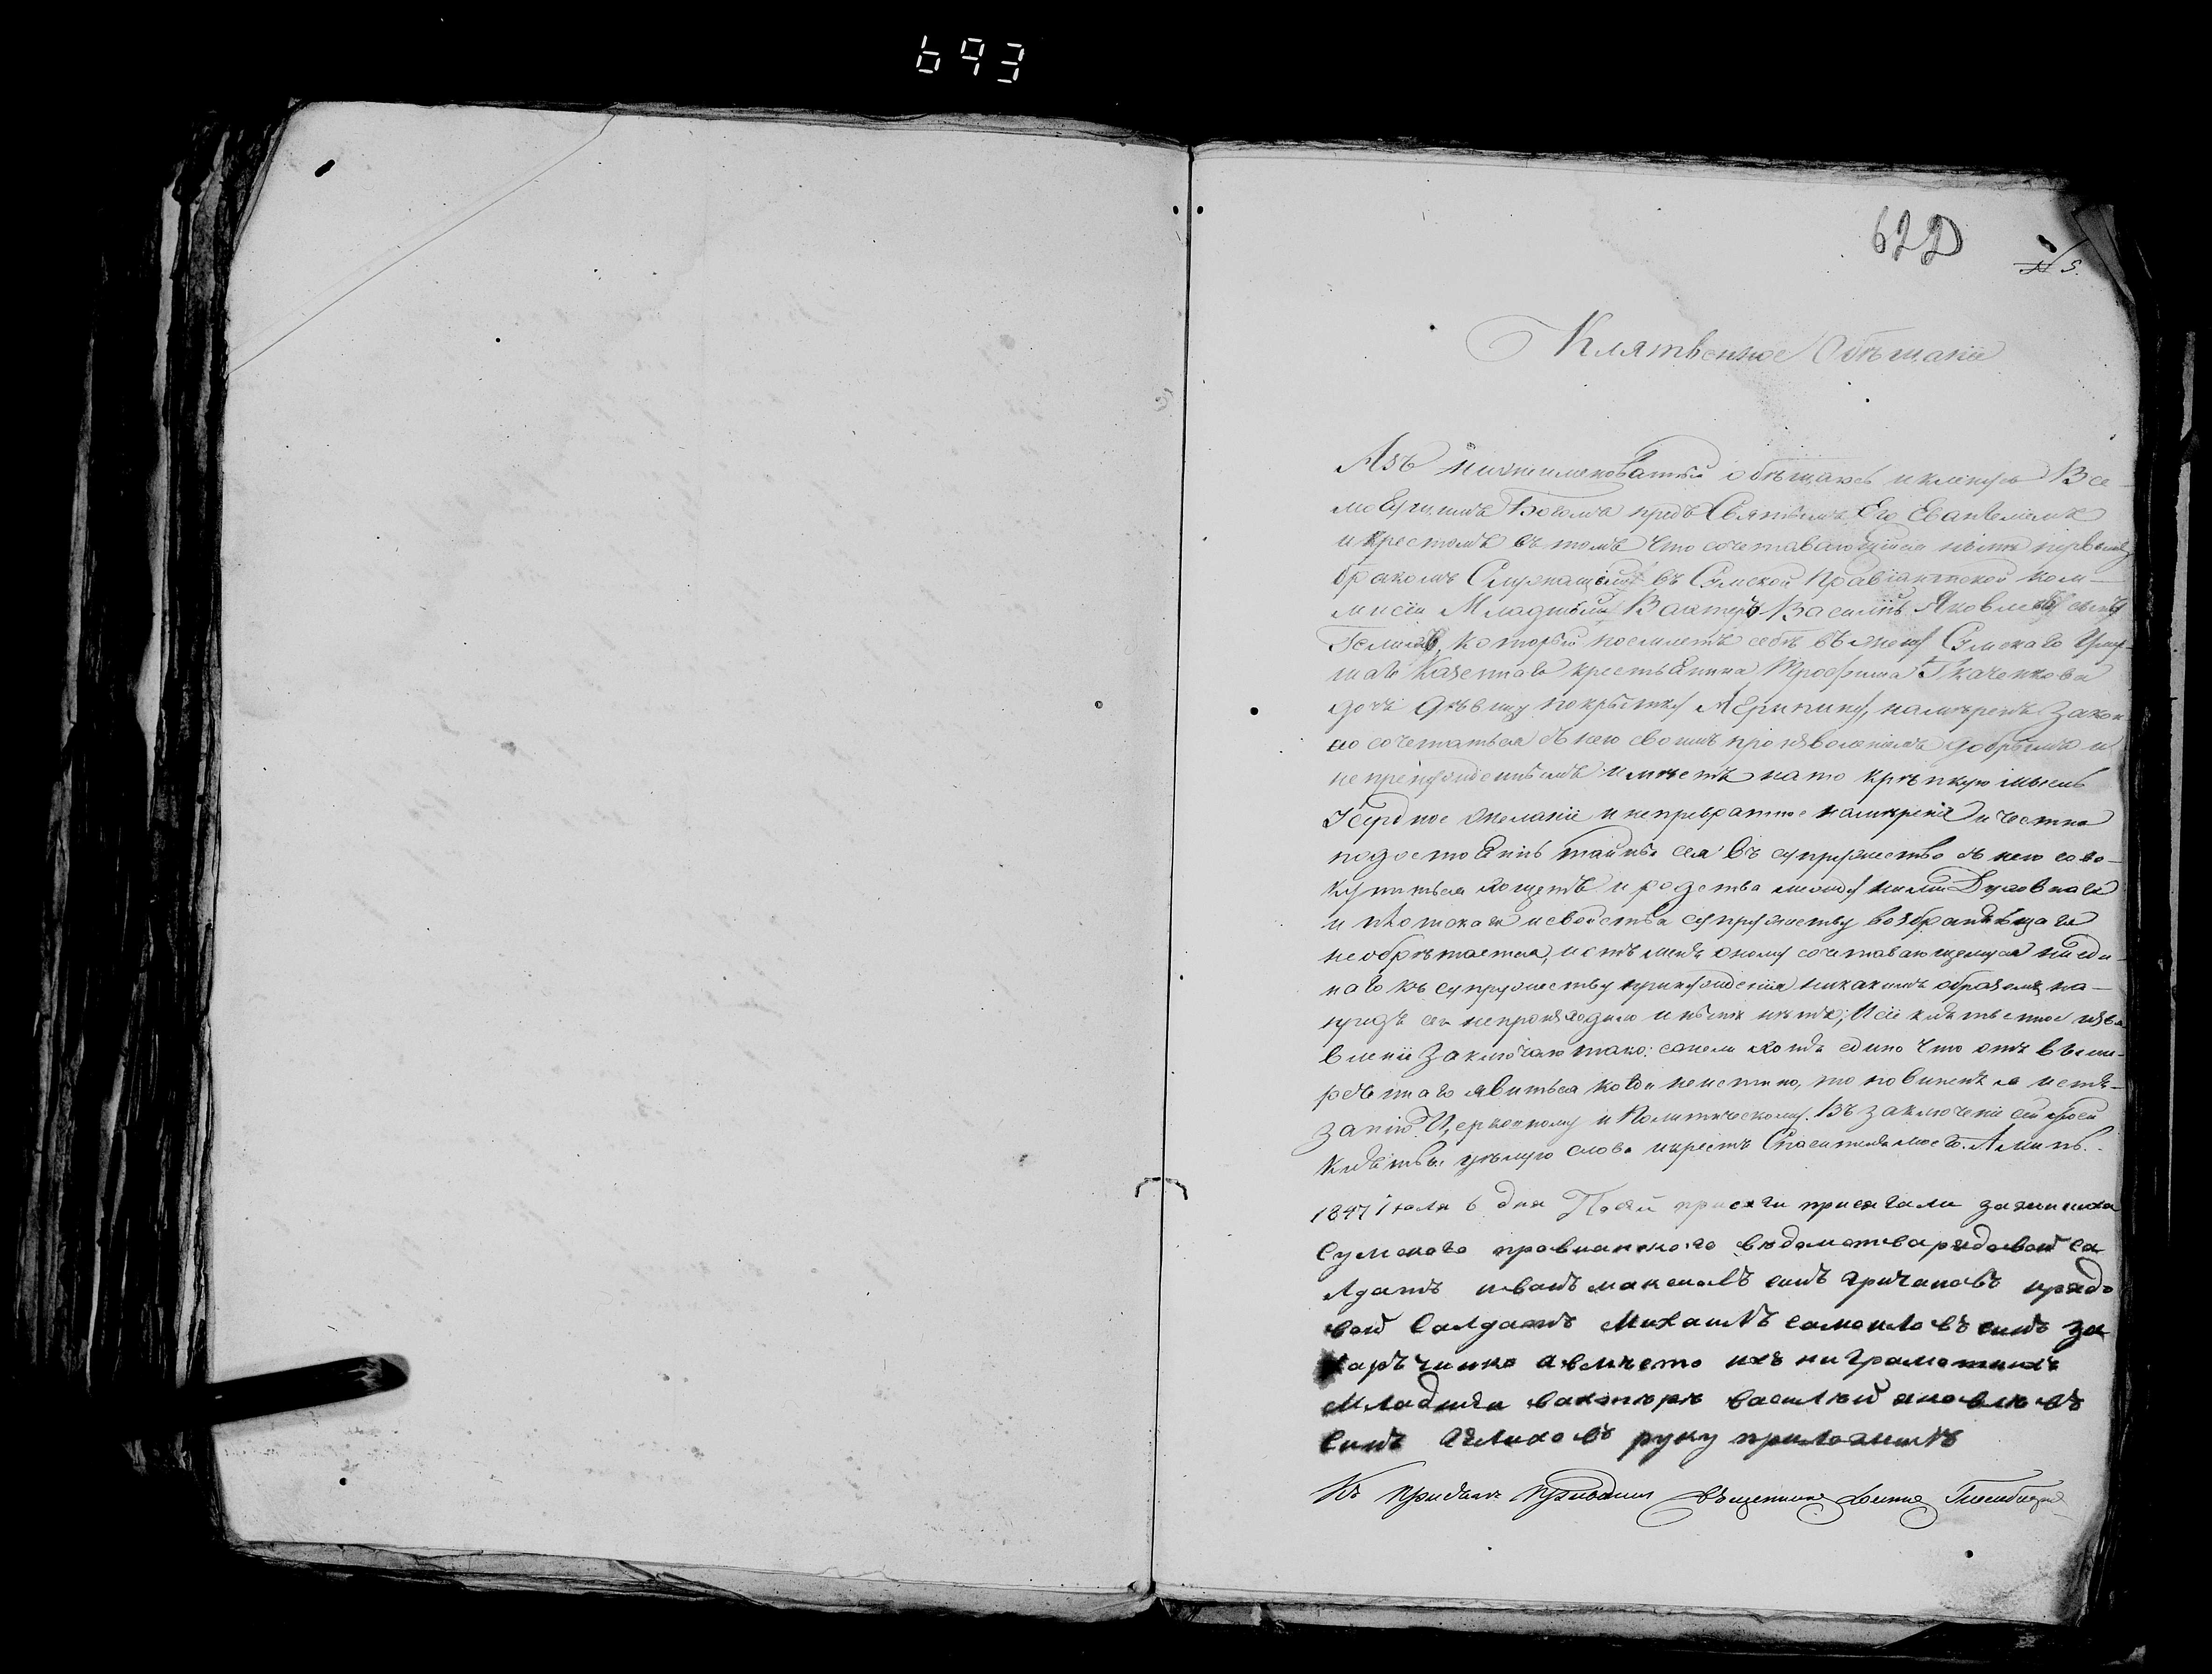 693
622
№ 5.
Клятвенное Обѣщаніе
Азъ нижеименованный обѣщаюсь и клянусь Все-
могущимъ Богомъ предъ Святымъ Его Евангеліемъ
и крестомъ въ томъ что сочетавающійся нынѣ первымъ
бракомъ Служащій въ Сумской Правіантской ком-
мисіи Младшій Вахтеръ Василій Яковлевъ сынъ
который поемлетъ себѣ въ жену Сумскаго
Казеннаго крестьянина Трофима Ткаченкова
дочь дѣвицу покрытку Агрипину, намѣренъ закон-
но сочетаться съ нею своимъ произволеніемъ добрымъ и
непренужденнымъ имѣетъ на то крѣпкую мысль
Усердное желаніе и непревратное намѣреніе и честна
по достоянію тайны сея въ супружество съ нею сово-
купиться хощетъ и родства между ними Духовнаго
и плотскаго и свойства супружеству возбраняющаго
необрѣтается, и отъ мене оному сочетавающемуся ни еди-
наго къ супружеству принужденія никакимъ образомъ на-
предъ сего непроизходило и нынѣ нѣтъ; И сіе клятвенное изъя-
вленіе заключаю тако: ежели хотя едино что отъ выше-
реченнаго явиться когда неистинно, то повиненъ я истя-
занію Церковному и Политическому. Въ заключеніе сей моей
клятвы цѣлую слова и крестъ Спасителя моего. Аминь.
1847 іюля 6 дня По сей присяги присягали за жениха
Сумскаго провианскаго вѣдомства рядовой са
лдатъ иванъ максимовъ синъ гричановъ ирядо
вой Салдатъ Михаилъ самоиловъ синъ за
харъченко авмѣсто ихъ ниграмотнихъ
Младшій вахтеръ василѣй яковлѣвъ
синъ руку приложилъ
Къ присягѣ приводилъ священникъ